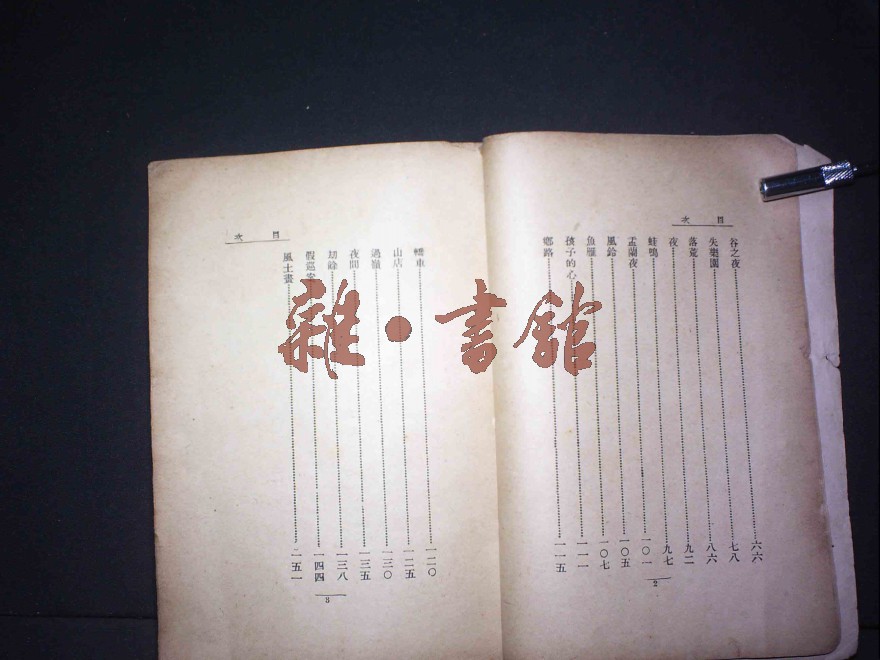 目次
谷之夜 六六
失樂園 七八
落荒 八六
夜 九二
蛙鴨 九七
盂蘭夜 一〇一
風鈴 一〇五
魚雁 一〇七
孩子的心 一一一
鄉路 一一五
2
目次
轎車 一二〇
山店 一二五
過嶺 一三〇
夜間 一三五
劫餘 一三八
假巡案 一四四
風土畫 一五一
3
雜·書館